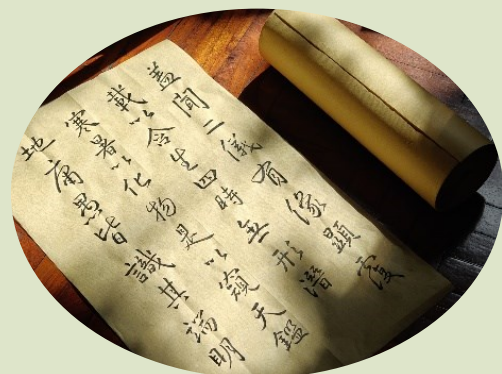 盖聞二儀有像顯覆
載以含生四時無形潛
寒暑以化物是以窺天鑑
地庸愚皆識其端明